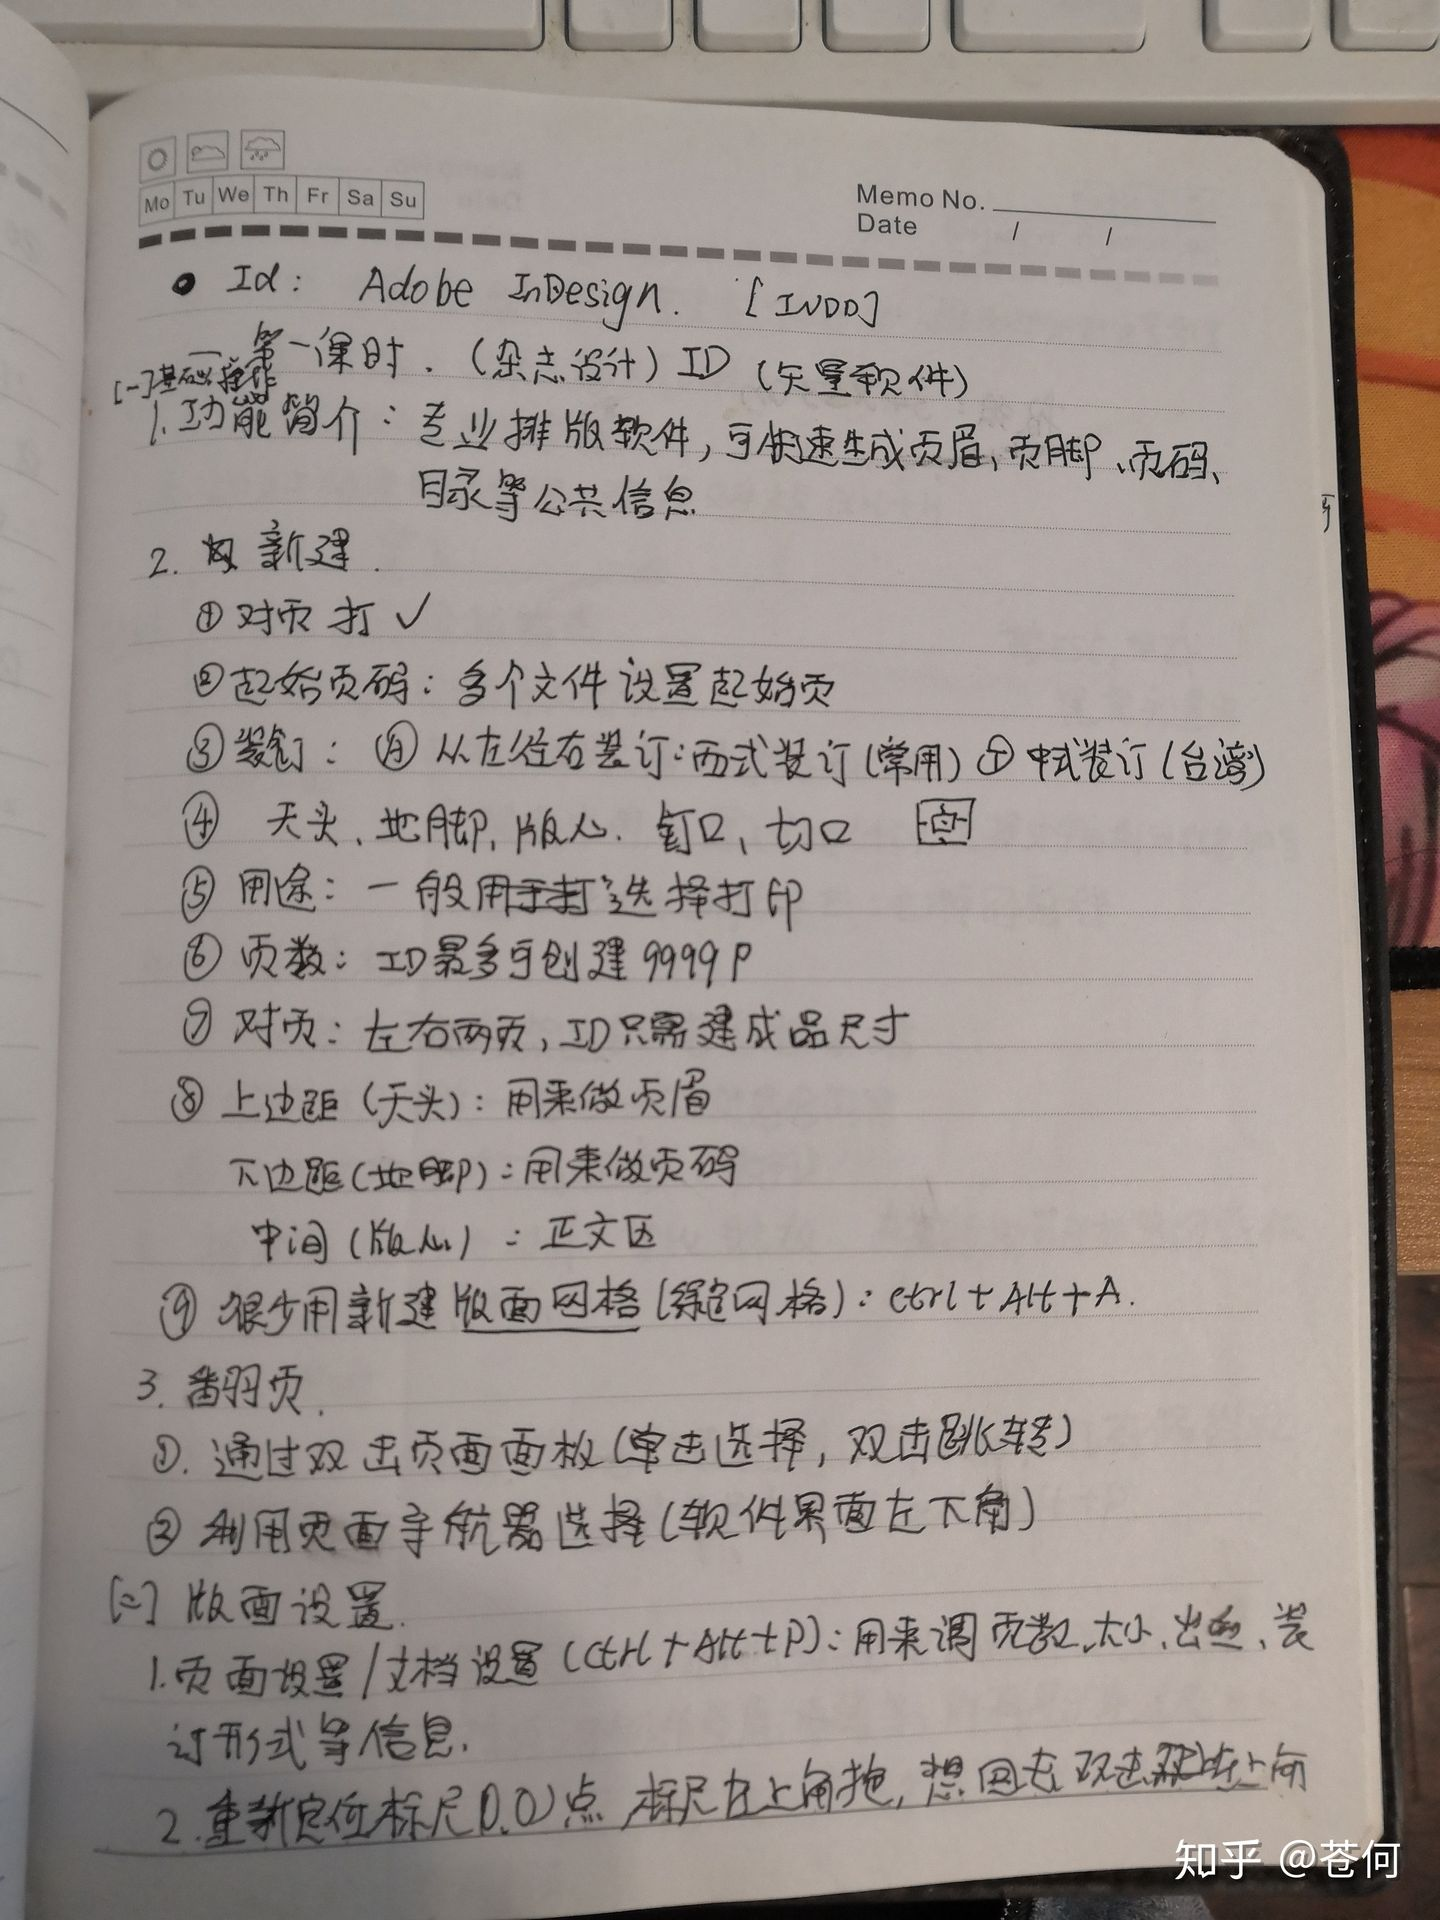 Mo Tu We Th Fr Sa Su
Memo No.
Date / /
● Id: Adobe InDesign. [INDD]
一 第一课时. (杂志设计) ID (矢量软件)
[一]基础操作
1.功能简介: 专业排版软件, 可快速生成页眉、页脚、页码、
目录等公共信息
2. 新建.
① 对页 打 ✓
②起始页码: 多个文件设置起始页
③装钉: 从左往右装订:西式装订(常用) 中式装订(台湾)
④ 天头、地脚, 版心. 钉口、切口
⑤ 用途: 一般用于打选择打印
⑥ 页数: ID最多可创建9999P
⑦ 对页: 左右两页, ID只需建成品尺寸
⑧ 上边距(天头): 用来做页眉
下边距(地脚): 用来做页码
中间(版心): 正文区
⑨ 很少用新建版面网格(绿色网格): Ctrl+Alt+A.
3. 翻页.
①. 通过双击页面面板(单击选择, 双击跳转)
② 利用页面导航器选择(软件界面左下角)
[二] 版面设置.
1.页面设置/文档设置(Ctrl+Alt+P): 用来调页数、大小、出血、装
订形式等信息.
2.重新定位标尺(0,0)点, 标尺左上角拖, 想回去双击左上角
知乎 @苍何